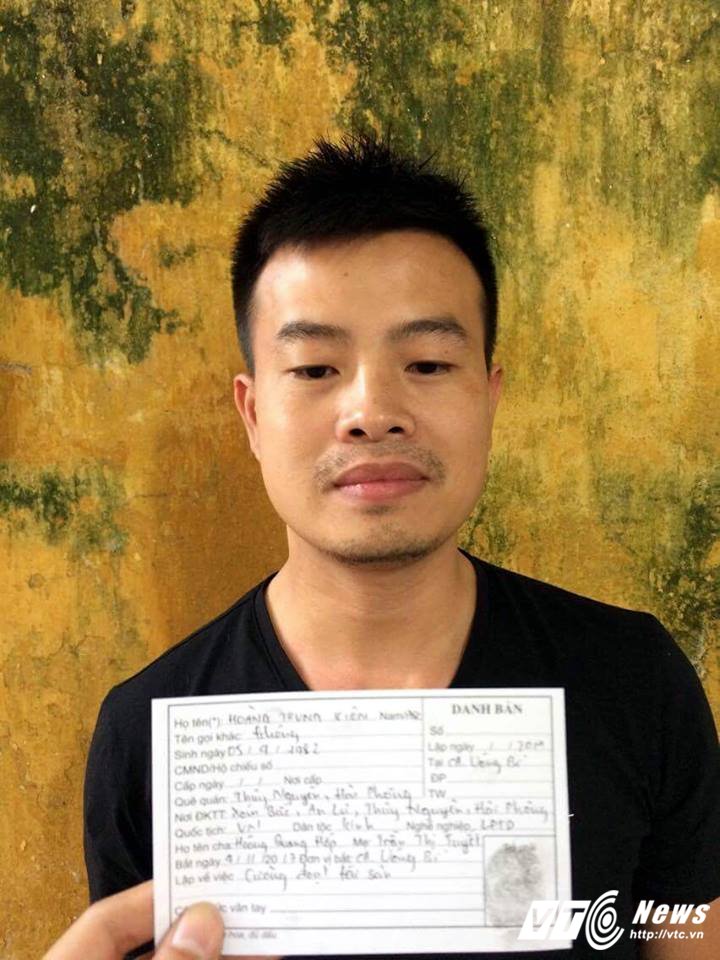 DANH BẢN
Họ tên(*): HOÀNG TRUNG KIÊN Nam/nữ:
Số
Tên gọi khác: Không
Lập ngày / / 201
Sinh ngày 05 / 9 / 1982
Tại CA. Uông Bí
CMND/Hộ chiếu số
ĐP
Cấp ngày / / Nơi cấp
TW
Quê quán: Thủy Nguyên, Hải Phòng
Nơi ĐKTT: Xóm Bắc, An Lư, Thủy Nguyên, Hải Phòng
Quốc tịch: VN Dân tộc Kinh Nghề nghiệp LĐTD
Họ tên cha Hoàng Quang Hợp Mẹ Trần Thị Tuyết
Bắt ngày 9/11/2017 Đơn vị bắt CA. Uông Bí
Lập về việc: Cưỡng đoạt tài sản
vân tay
hoa, đủ dấu
VTC News
http://vtc.vn